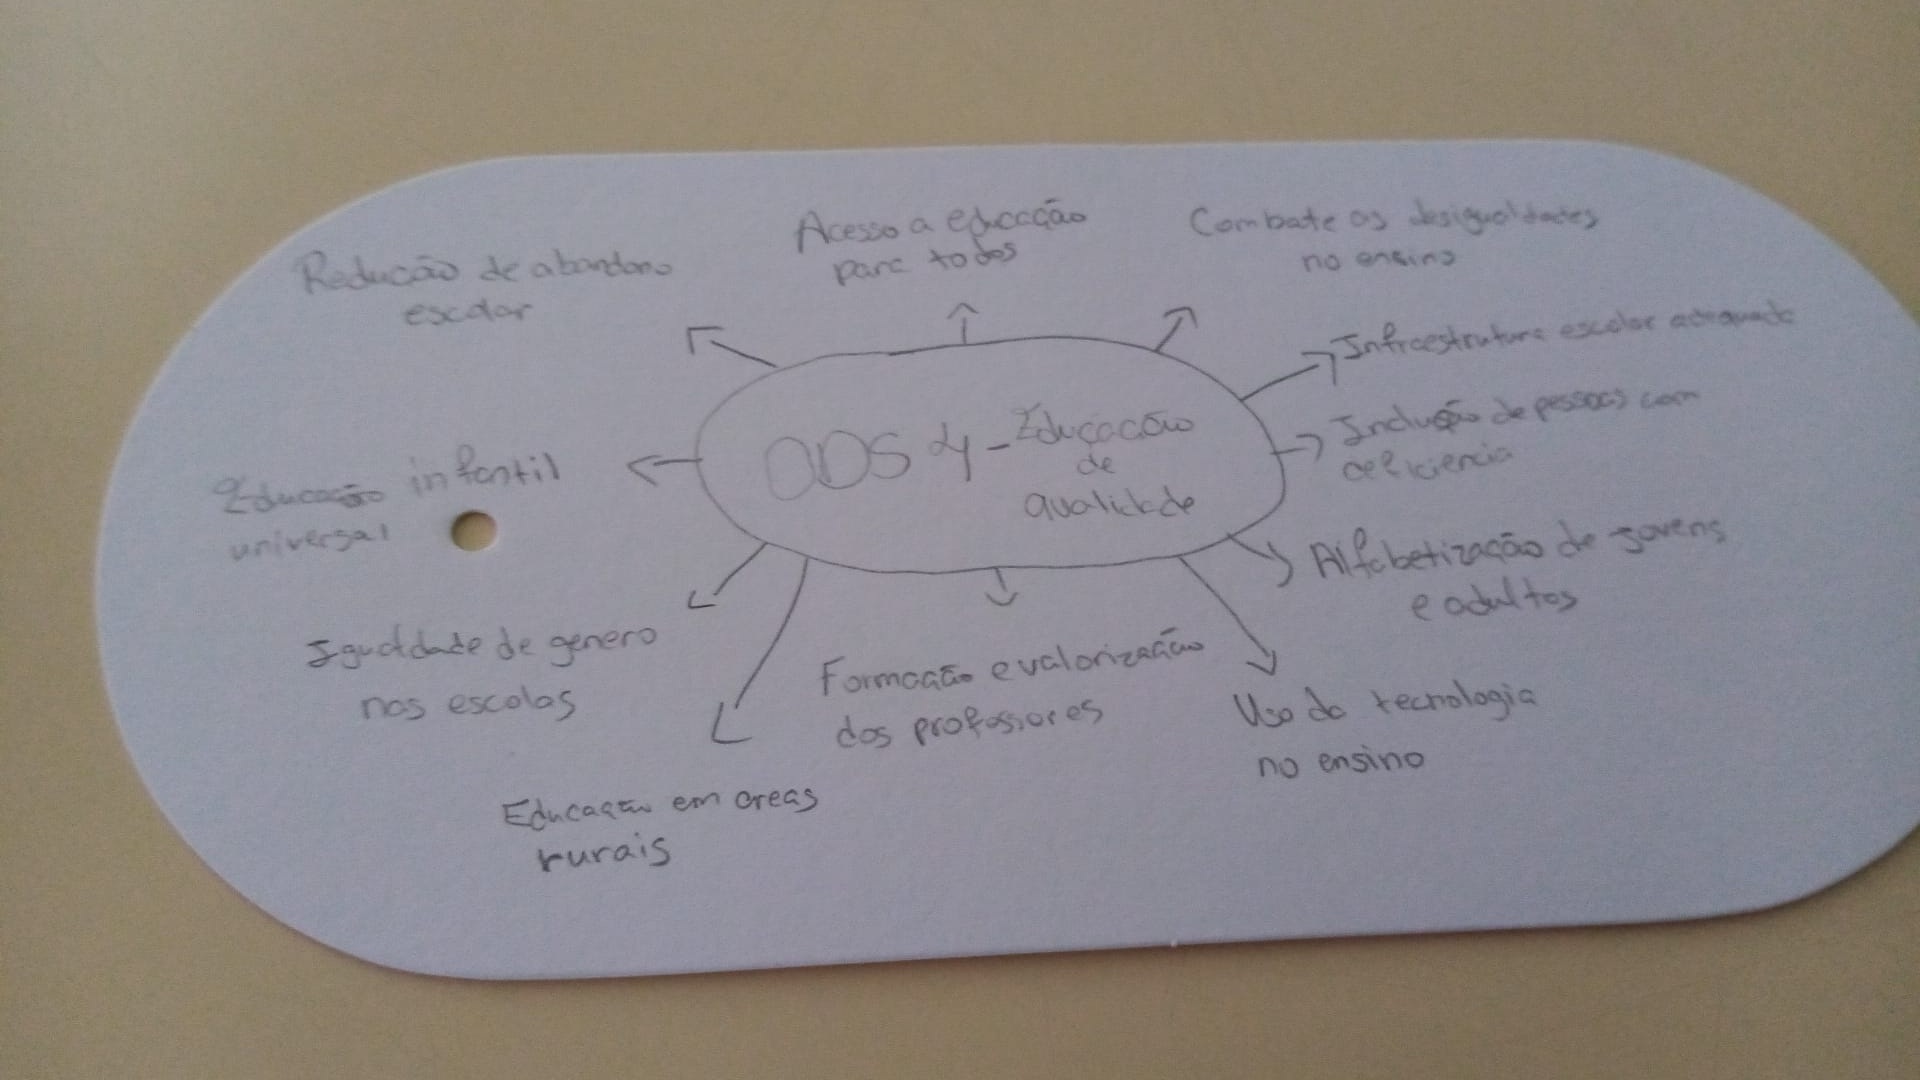 Redução de abandono
escolar
Acesso a educação
para todos
Combate as desigualdades
no ensino
Infraestrutura escolar adequada
Inclusão de pessoas com
deficiencia
ODS 4 - Educação
de
qualidade
Educação infantil
universal
Alfabetização de jovens
e adultos
Igualdade de genero
nas escolas
Formação e valorização
dos professores
Uso da tecnologia
no ensino
Educação em areas
rurais